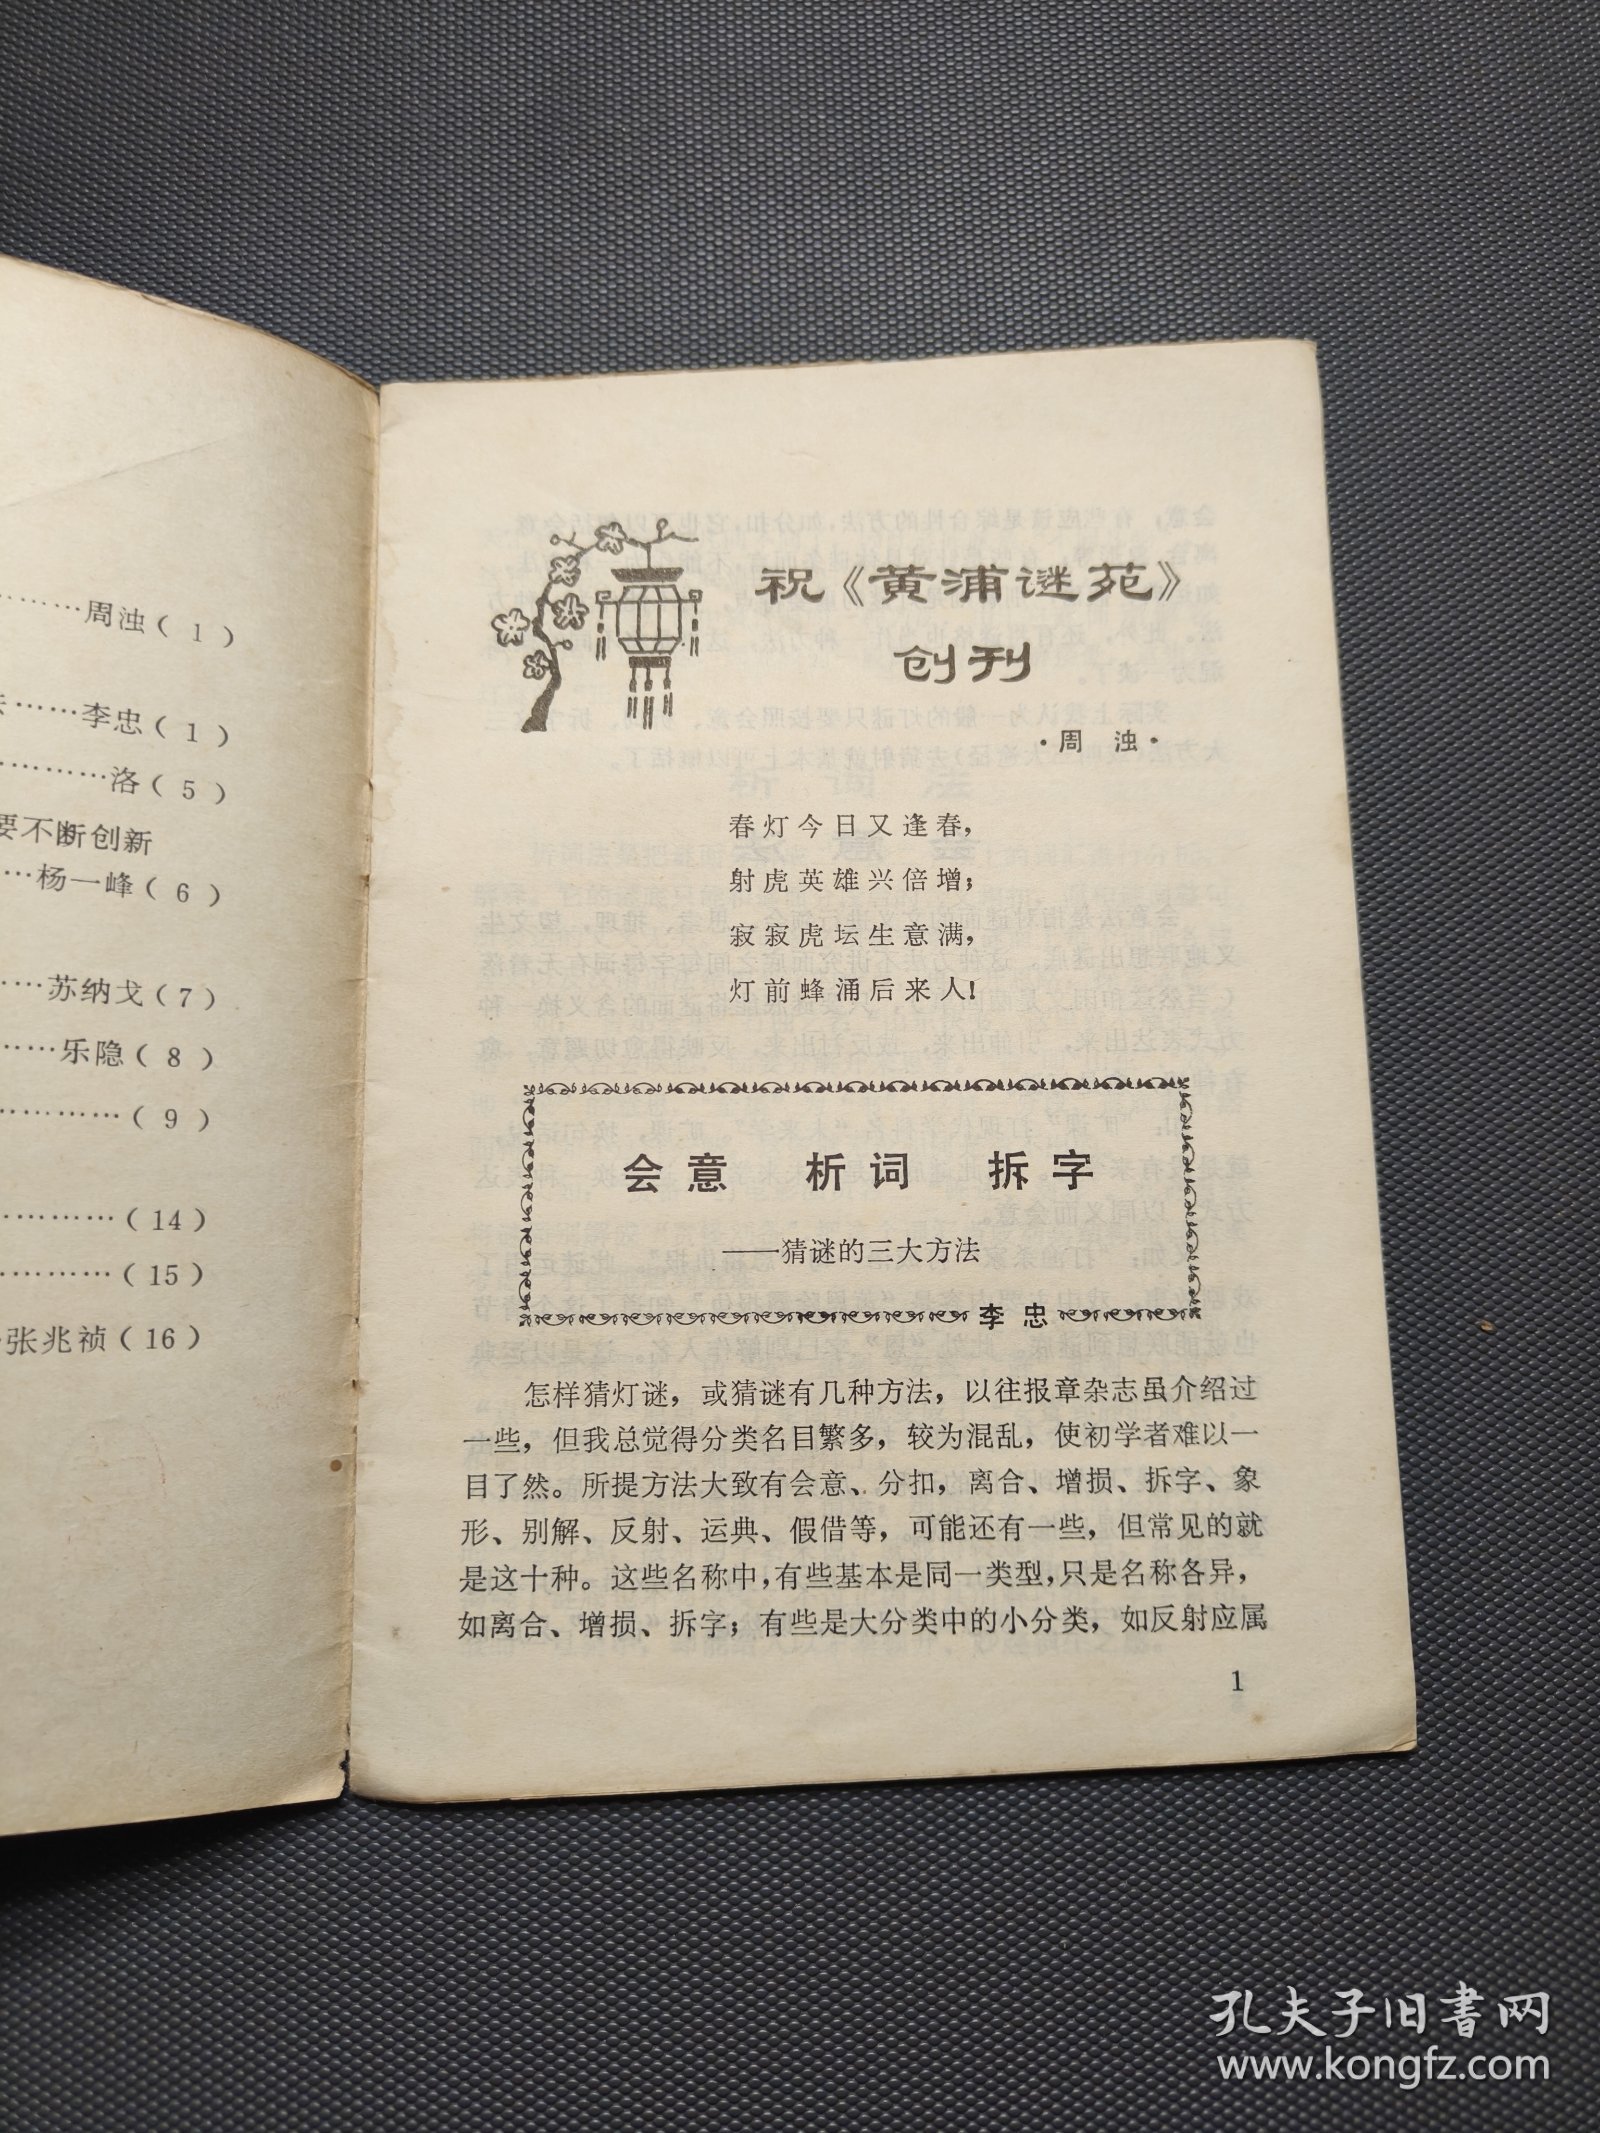 周浊（1）
李忠（1）
洛（5）
要不断创新
杨一峰（6）
苏纳戈（7）
乐隐（8）
（9）
（14）
（15）
张兆祯（16）
祝《黄浦谜苑》
创刊
·周 浊·
春灯今日又逢春，
射虎英雄兴倍增；
寂寂虎坛生意满，
灯前蜂涌后来人！
会意 析词 拆字
——猜谜的三大方法
李 忠
怎样猜灯谜，或猜谜有几种方法，以往报章杂志虽介绍过
一些，但我总觉得分类名目繁多，较为混乱，使初学者难以一
目了然。所提方法大致有会意、分扣，离合、增损、拆字、象
形、别解、反射、运典、假借等，可能还有一些，但常见的就
是这十种。这些名称中，有些基本是同一类型，只是名称各异，
如离合、增损、拆字；有些是大分类中的小分类，如反射应属
1
孔夫子旧书网
www.kongfz.com